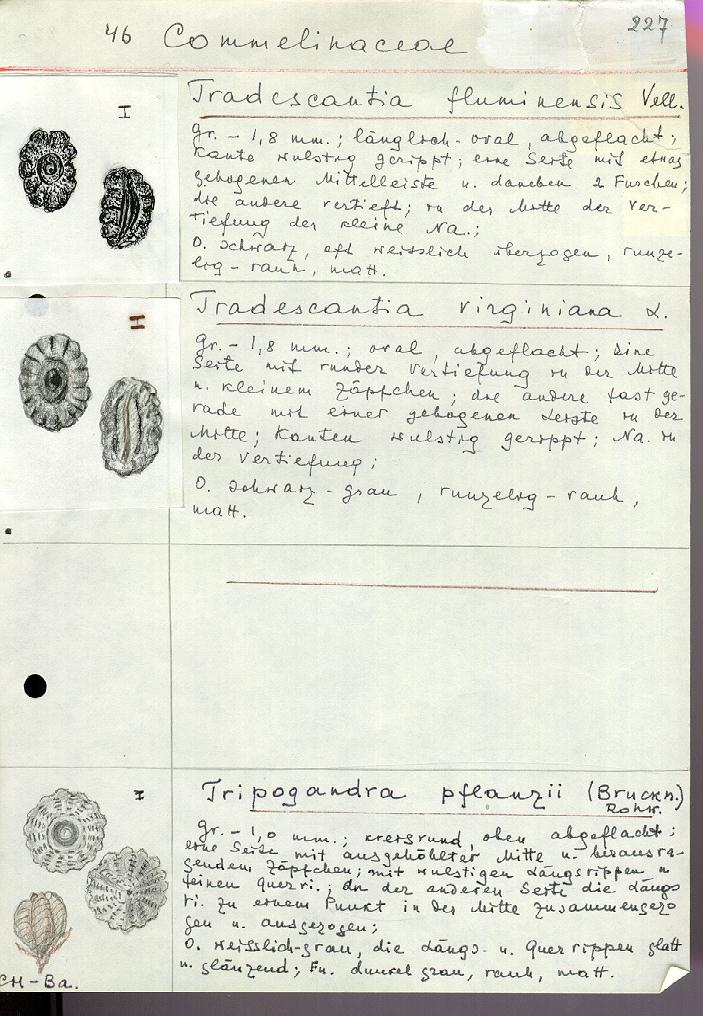 46 Commelinaceae 227
I
Tradescantia fluminensis Vell.
Gr. – 1,8 mm.; länglich-oval, abgeflacht;
Kante wulstig gerippt; eine Seite mit etwas
gebogenen Mittelleiste u. daneben 2 Furchen;
die andere vertieft; in der Mitte der Ver-
tiefung der kleine Na.;
O. schwarz, oft weisslich überzogen, runze-
lig – rauh, matt.
I
Tradescantia virginiana L.
Gr. – 1,8 mm.; oval, abgeflacht; eine
Seite mit runder Vertiefung in der Mitte
u. kleinem Zäpfchen; die andere fast ge-
rade mit einer gebogenen Leiste in der
Mitte; Kanten wulstig gerippt; Na. in
der Vertiefung;
O. schwarz-grau, runzelig – rauh,
matt.
I
Tripogandra pflanzii (Bruckn.)
Rohw.
Gr. – 1,0 mm.; kreisrund, oben abgeflacht;
eine Seite mit ausgehöhlter Mitte u. herausra-
gendem Zäpfchen; mit wulstigen Längsrippen u.
feinen Querri.; an der anderen Seite die Längs
ri. zu einem Punkt in der Mitte zusammengezo
gen u. ausgezogen;
O. weisslich-grau, die Längs- u. Querrippen glatt
u. glänzend; Fu. dunkel grau, rauh, matt.
CH-Ba.